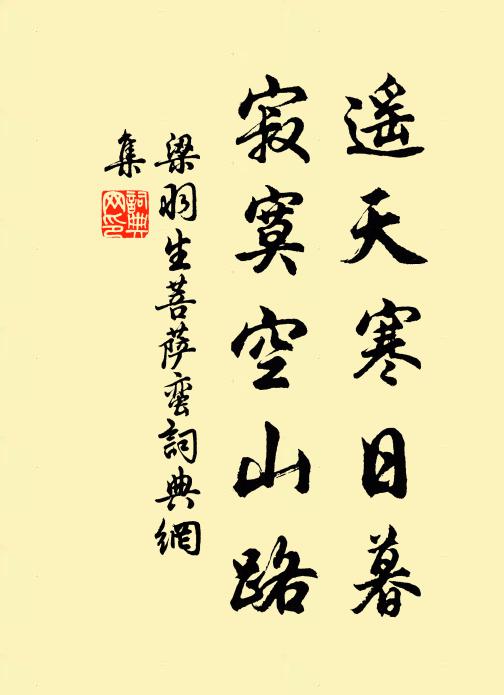 遥天寒日暮
寂寞空山路
梁羽生菩萨蛮詞典網
集
詞典
网印